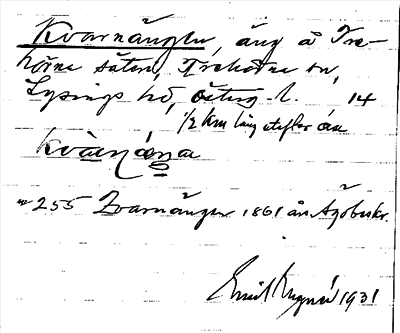 Kvarnängen, äng å Tre-
hörna säteri, Trehörna sn,
Lysings hd, Östergl. l. 14
1/2 km lång utefter ån
nr 255 Kvarnängen 1861 års Ägobeskr.
Emil 1931